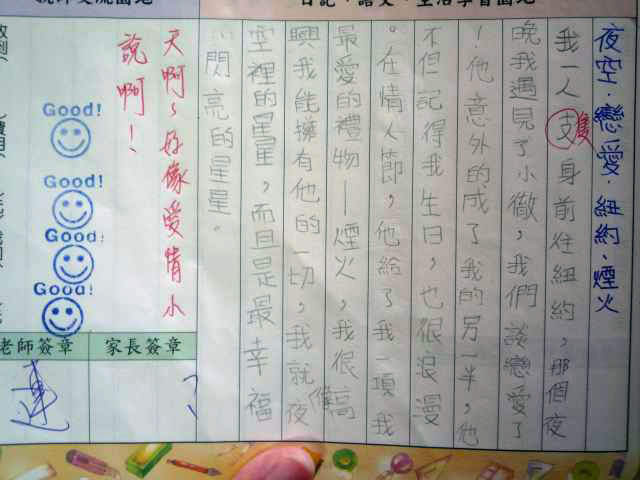 日記、語文、生活學習園地
師交流園地
夜空.戀愛.紐約.煙火
我一人支身前往紐約，那個夜
隻
晚我遇見了小徹，我們談戀愛了
！他意外的成了我的另一半，他
不但記得我生日，也很浪漫
。在情人節，他給了我一項我
最愛的禮物—煙火，我很高
興我能擁有他的一切，我就像夜
空裡的星星，而且是最幸福
閃亮的星星。
天啊~好像愛情小
說啊！
Good!
Good!
Good!
Good!
家長簽章
老師簽章